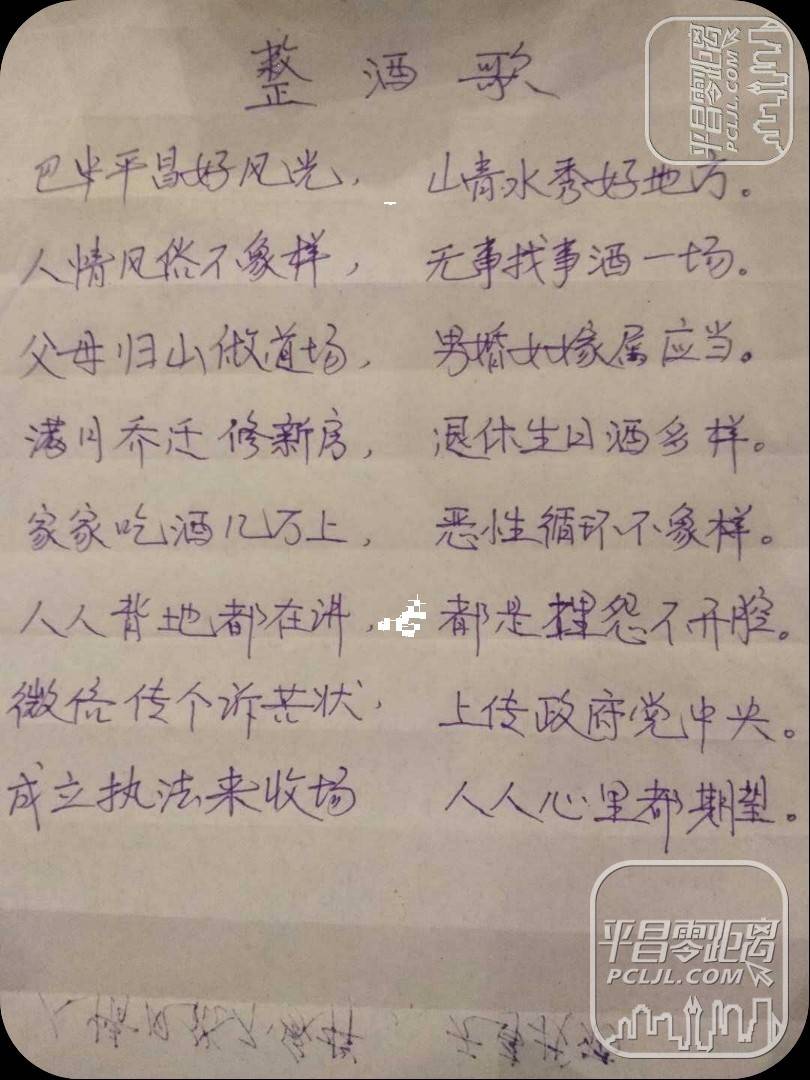 整酒歌
巴中平昌好风光， 山青水秀好地方。
人情风俗不象样， 无事找事酒一场。
父母归山做道场， 男婚女嫁属应当。
满月乔迁修新房， 退休生日酒多样。
家家吃酒几万上， 恶性循环不象样。
人人背地都在讲， 都是埋怨不开腔。
微信传个诉苦状， 上传政府党中央。
成立执法来收场 人人心里都期望。
平昌零距离
PCLJL.COM
平昌零距离
PCLJL.COM